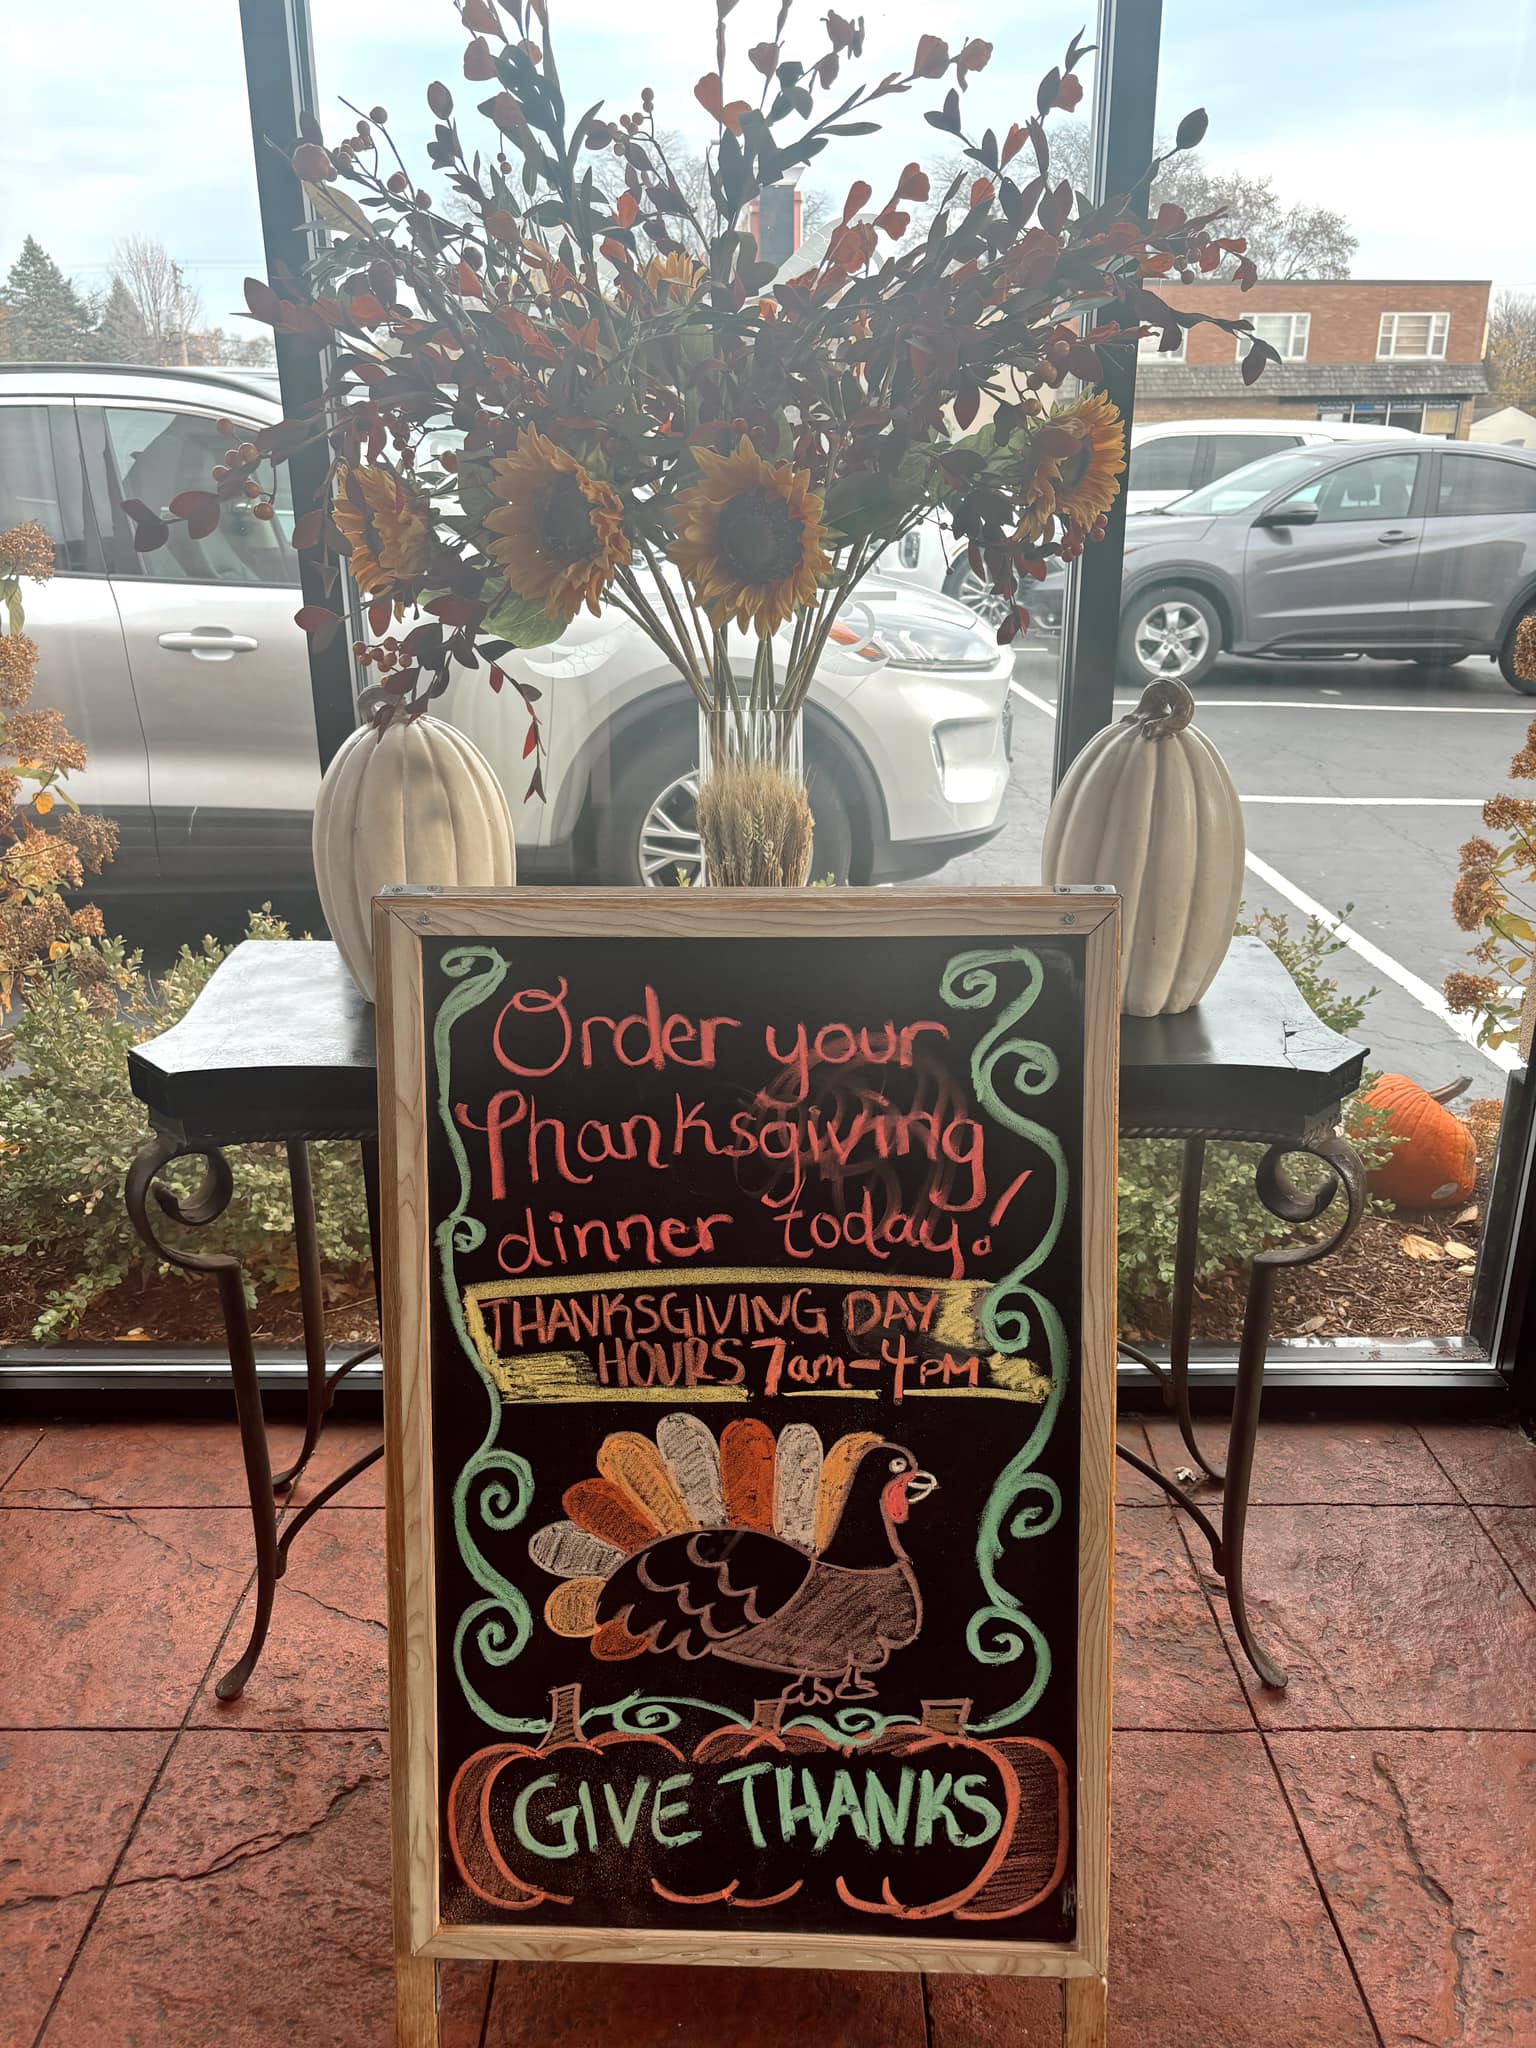 Order your
Thanksgiving
dinner today!
THANKSGIVING DAY
HOURS 7am-4PM
GIVE THANKS